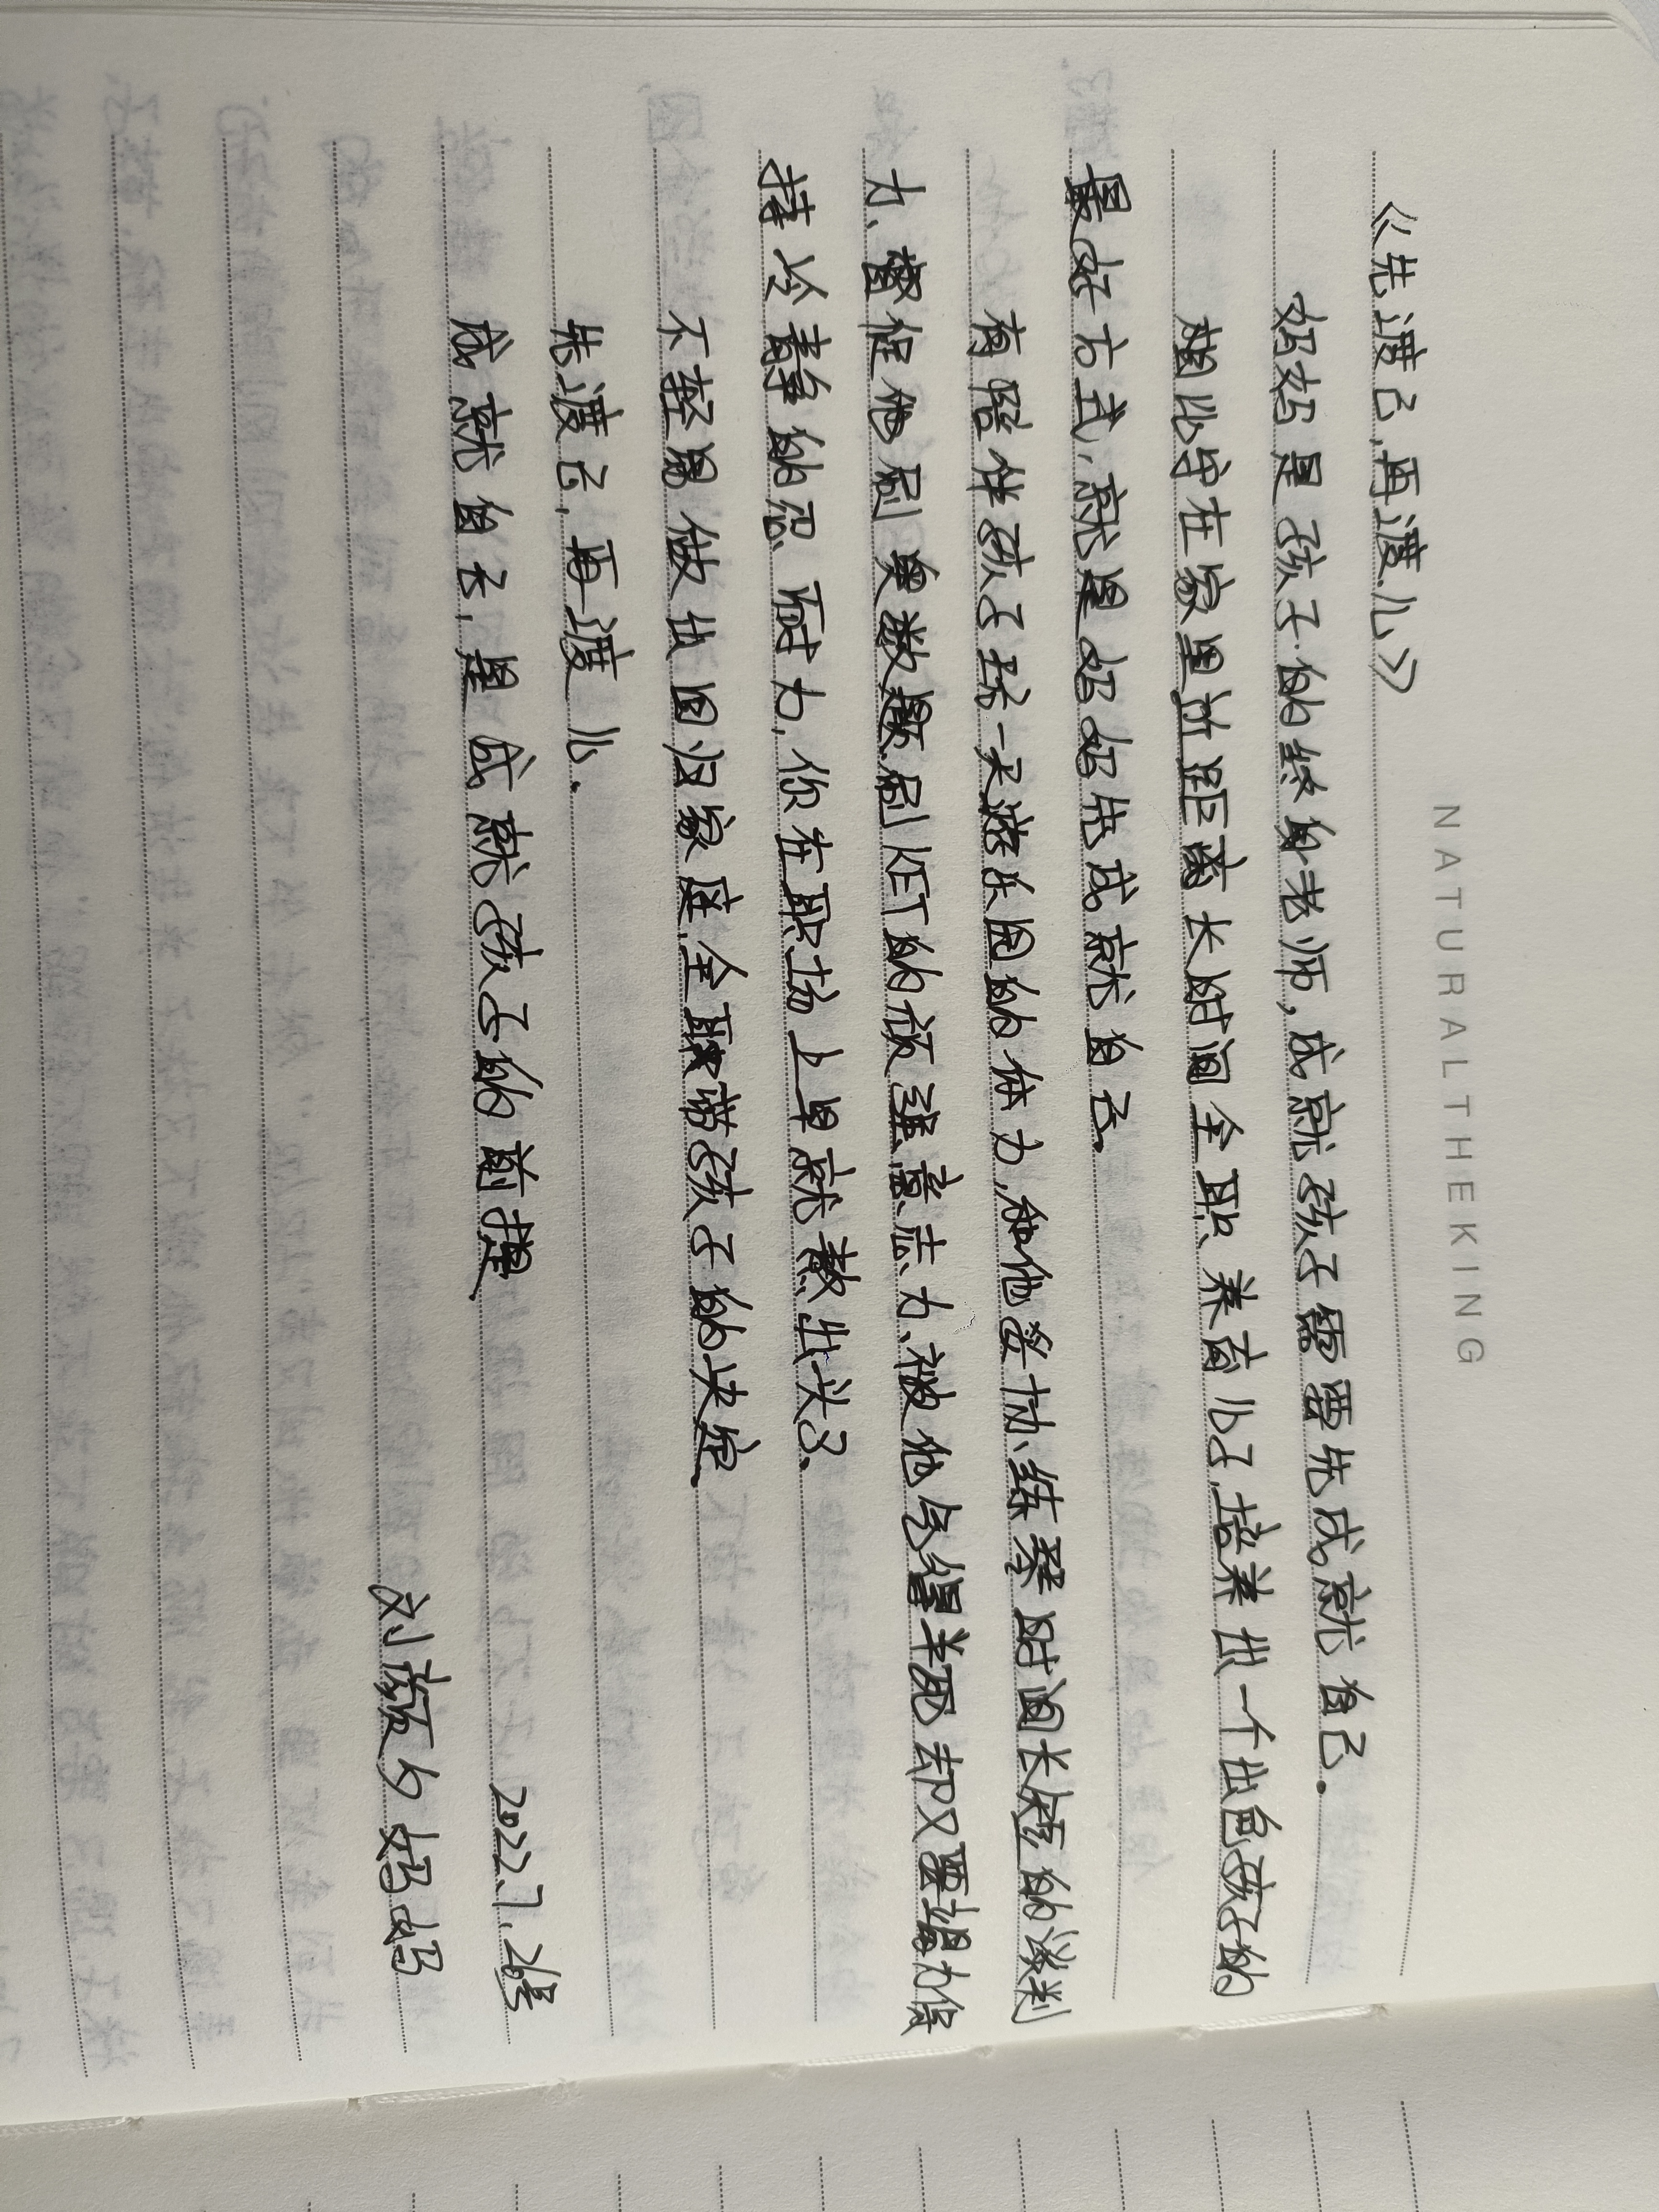 NATURALTHEKING
《先渡己,再渡儿》
妈妈是孩子的终身老师,成就孩子需要先成就自己.
相比守在家里近距离长时间全职养育儿子,培养出一个出色孩子的
最好方式,就是妈妈先成就自己.
有陪伴孩子玩一天游乐园的体力,和他妥协练琴时间长短的谈判
力、督促他刷奥数题、刷KET的顽强意志力、被他气得半死却又要竭力保
持冷静的忍耐力,你在职场上早就熬出头了.
不轻易做出回归家庭,全职带孩子的决定.
先渡己,再渡儿.
成就自己,是成就孩子的前提.
2022.7.26号
刘颜夕妈妈